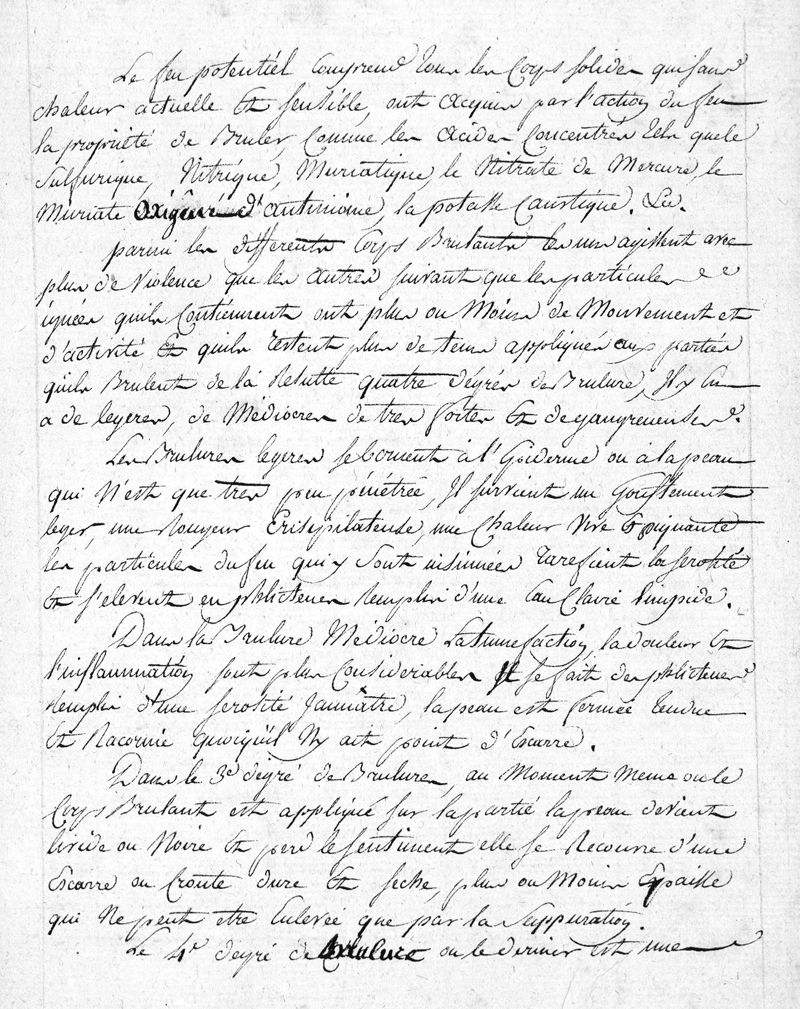 Le feu potentiél Comprend tous les Corps solides qui sans
chaleur actuelle Et sensible, ont acquis par l'action du feu
la propriété de Bruler, Comme les acides Concentrés tels que le
Sulfurique, Nitrique, Muriatique, le Nitrate de Mercure, le
Muriate Oxigéné d'antimoine, la potasse Caustique. &c.
parmi les differents Corps Brulants les uns agissent avec
plus de Violence que les autres suivant que les particules
ignées quils Contiennent ont plus ou Moins de Mouvement et
d'activité Et quils restent plus de tems appliqués aux parties
quils Brulent de là Resulte quatre dégrés de Brulure, Il y En
a de legeres, de Médiocres de tres fortes Et de gangreneuses.
Les Brulures legeres se bornent à l'Epiderme ou à la peau
qui N'est que tres peu pénétrée, Il survient un Gonflement
leger, une Rougeur Erisipilateuse, une Chaleur Vive Et piquante
les particules du feu qui y sont insinuées rarefient la serosité
Et s'elevent en phlictenes Remplis d'une Eau Claire limpide.
Dans la Brulure Médiocre La tumefaction, la douleur Et
l'inflammation sont plus Considerables Il se fait des phlictenes
Remplis d'une serosité Jaunâtre, la peau est fermée tendue
Et Racornie quoiqüil N'y ait point d'Escarre.
Dans le 3e dégré de Brulures, au Moment Meme ou le
Corps Brulant est appliqué sur la partié la peau devient
livide ou Noire Et perd le sentiment elle se Recouvre d'une
Escarre ou Croute dure Et seche, plus ou Moins Epaisse
qui Ne peut etre Enlevée que par la Suppuration.
Le 4e dégré de Brulure ou le dernier est une